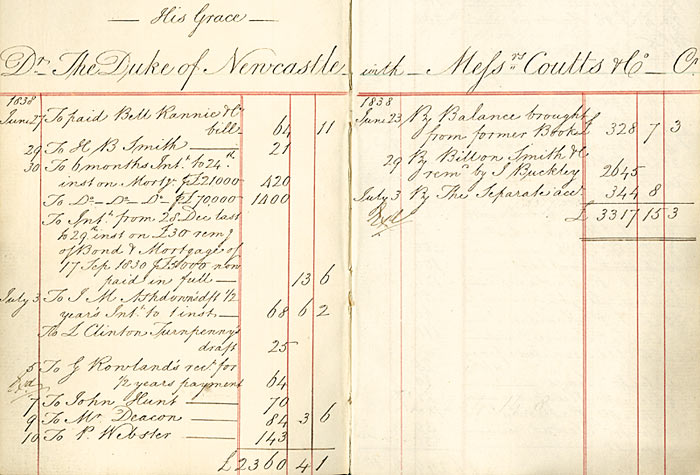 His Grace
Dr The Duke of Newcastle with Messrs Coutts & Co Cr
1838
June 27 To paid Bell Rannie & Co
bill 64 11
29 To H B Smith 21
30 To 6 months Intt to 24th
inst on Mortge £21000 420
To Do Do Do £70000 1400
To Intt from 28 Dec last
to 29th inst on £30 remg
of Bond & Mortgage of
17 Sep 1830 now
paid in full 13 6
July 3 To I M Ashdown's dft 1/2
year's Intt to 1 inst 68 6 2
To L Clinton Turnpenny's
draft 25
5 To G Rowland's rect for
1/2 years payment 64
Exd
7 To John Hunt 70
9 To Mr Deacon 84 3 6
10 To P. Webster 143
£ 2360 4 1
1838
June 23 By Balance brought
from former Book 328 7 3
29 By Bill on Smith & Co
remd by J Buckley 2645
July 3 By The Separate acct 344 8
Exd
£ 3317 15 3